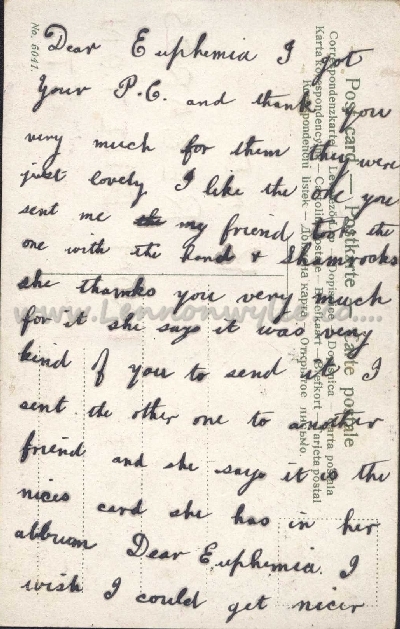 Dear Euphemia I got
your P.C. and thank you
very much for them they were
just lovely I like the one you
sent me the my friend too the
one with the hand & Shamrocks
she thanks you very much
for it she says it was very
kind of you to send it I
sent the other one to another
friend and she says it is the
nices card she has in her
albbum Dear Euphemia. I
wish I could get nicer
No. 5041.
Postcard — Postkarte — Carte postale
Correspondenzkarte — Levelező-Lap — Dopisnice —
Karta korespondencyjna — Cartolina postale — Briefkaart — Brefkort — Tarjeta postal
Korespondenčni listek — Открытое письмо
www.Lennonwylie.co....